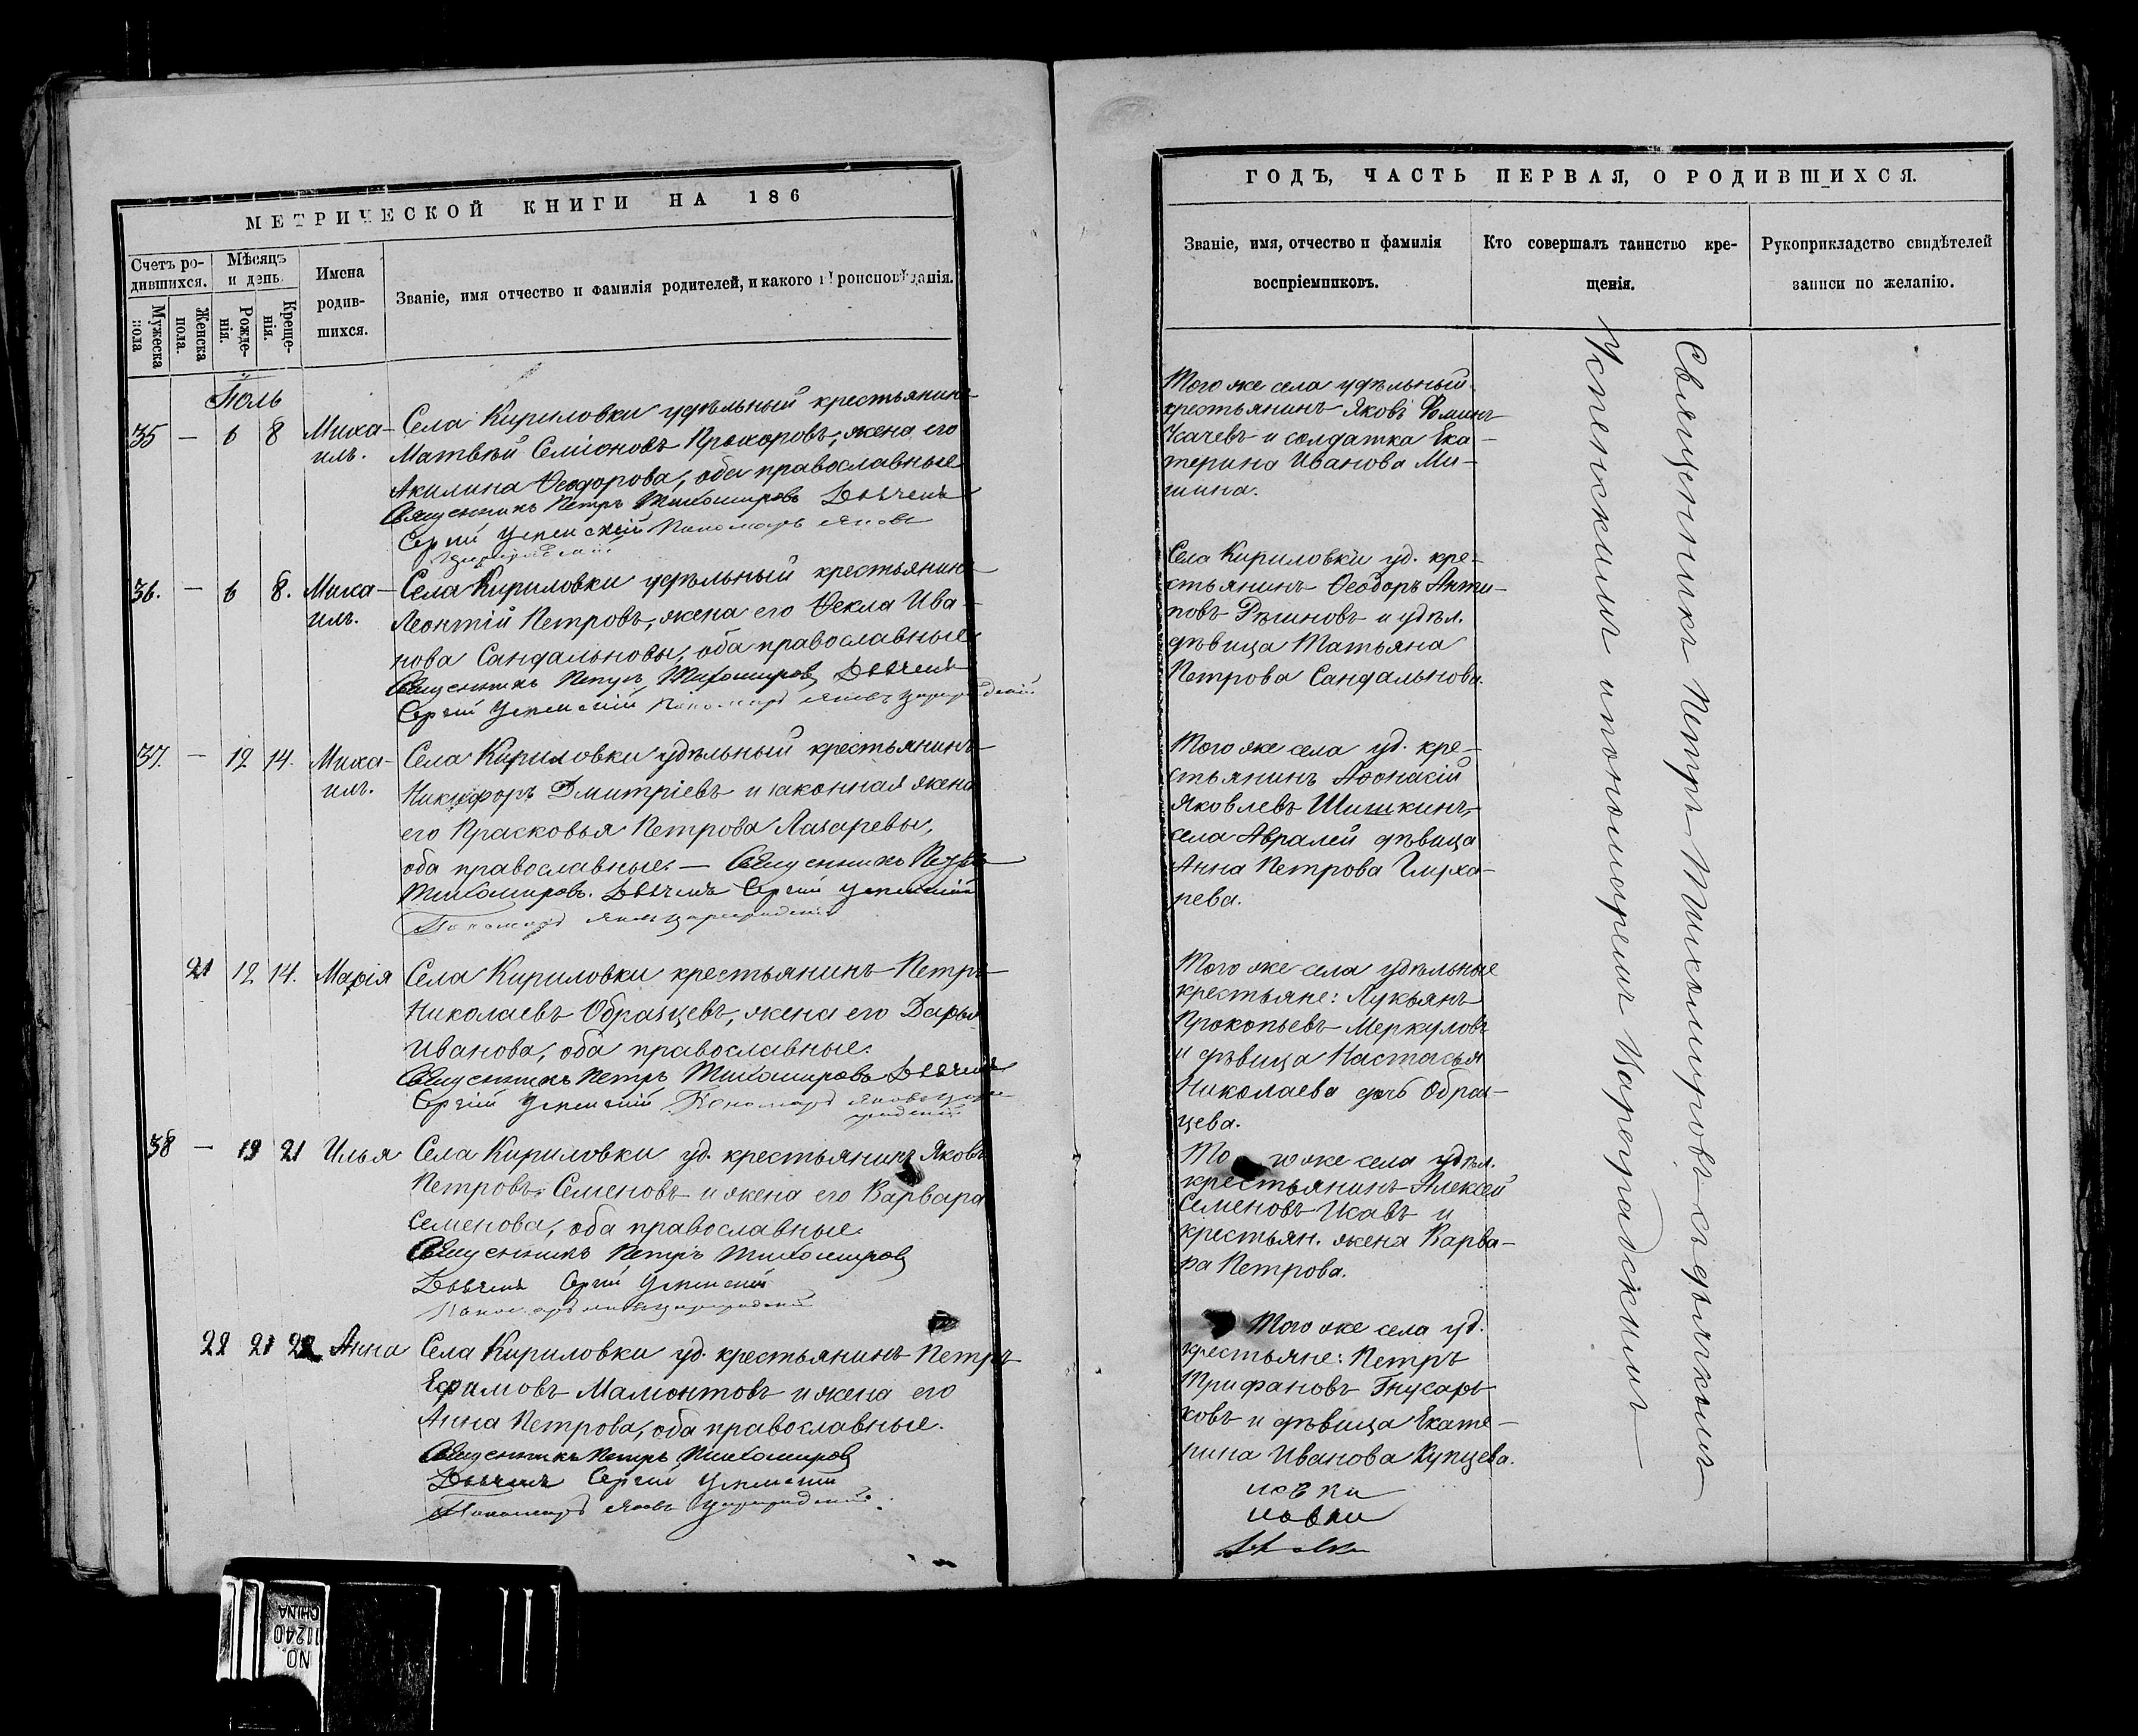 МЕТРИЧЕСКОЙ КНИГИ НА 186
Счетъ ро-
дившихся.
Мѣсяцъ
и день.
Имена
родив-
шихся.
Званіе, имя отчество и фамилія родителей, и какого вѣроисповѣданія.
Мужеска
пола
Женска
пола.
Рожде-
нія.
Креще-
нія.
Іюль
35 — 6 8 Миха- Села Кириловки удѣльный крестьянинъ
илъ. Матвѣй Семіоновъ Прохоровъ, жена его
Акилина Ѳеодорова, оба православные
Священникъ Петръ Тихомировъ Дьячекъ
Сергій Успенскій Пономарь Яковъ
Цареградскій
36. — 6 8. Миха- Села Кириловки удѣльный крестьянинъ
илъ. Леонтій Петровъ, жена его Ѳекла Ива-
нова Сандальновы, оба православные.
Священникъ Петръ Тихомировъ Дьячекъ
Сергій Успенскій Пономарь Яковъ Цареградскій
37. — 12 14. Миха- Села Кириловки удѣльный крестьянинъ
илъ. Никифоръ Дмитріевъ и законная жена
его Прасковья Петрова Лазаревы,
оба православные. — Священникъ Петръ
Тихомировъ. Дьячекъ Сергій Успенскій
Пономарь Яковъ Цареградскій
21 12 14. Марія Села Кириловки крестьянинъ Петръ
Николаевъ Образцевъ, жена его Дарья
Иванова, оба православные.
Священникъ Петръ Тихомировъ Дьячекъ
Сергій Успенскій Пономарь Яковъ Царе-
градскій
38 — 19 21 Илья Села Кириловки уд. крестьянинъ Яковъ
Петровъ Семеновъ и жена его Варвара
Семенова, оба православные.
Священникъ Петръ Тихомировъ
Дьячекъ Сергій Успенскій
Пономарь Яковъ Цареградскій
22 21 22 Анна Села Кириловки уд. крестьянинъ Петръ
Ефимовъ Мамонтовъ и жена его
Анна Петрова, оба православные.
Священникъ Петръ Тихомировъ
Дьячекъ Сергій Успенскій
Пономарь Яковъ Цареградскій.
ГОДЪ, ЧАСТЬ ПЕРВАЯ, О РОДИВШИХСЯ.
Званіе, имя, отчество и фамилія
воспріемниковъ.
Кто совершалъ таинство кре-
щенія.
Рукоприкладство свидѣтелей
записи по желанію.
Того же села удѣльный
крестьянинъ Яковъ Ѳоминъ
Усачевъ и солдатка Ека-
терина Иванова Ми-
шина.
Села Кириловки уд. кре-
стьянинъ Ѳеодоръ Анти-
повъ и удѣл.
дѣвица Татьяна
Петрова Сандальнова.
Того же села уд. кре-
стьянинъ Аѳонасій
Яковлевъ Шишкинъ,
села Авралей дѣвица
Анна Петрова Глуха-
рева.
Того же села удѣльные
крестьяне: Лукьянъ
Прокопьевъ Меркуловъ
и дѣвица Настасья
Николаева дочь Образ-
цева.
То го же села удѣл.
крестьянинъ Алексей
Семеновъ и
крестьян. жена Варва-
ра Петрова.
Того же села уд.
крестьяне: Петръ
Трифановъ Гнусарь-
ковъ и дѣвица Екате-
рина Иванова Купцева.
Священникъ Петръ Тихомировъ съ дьячкомъ
Успенскимъ и пономаремъ Цареградскимъ
NO.
11240
CHINA